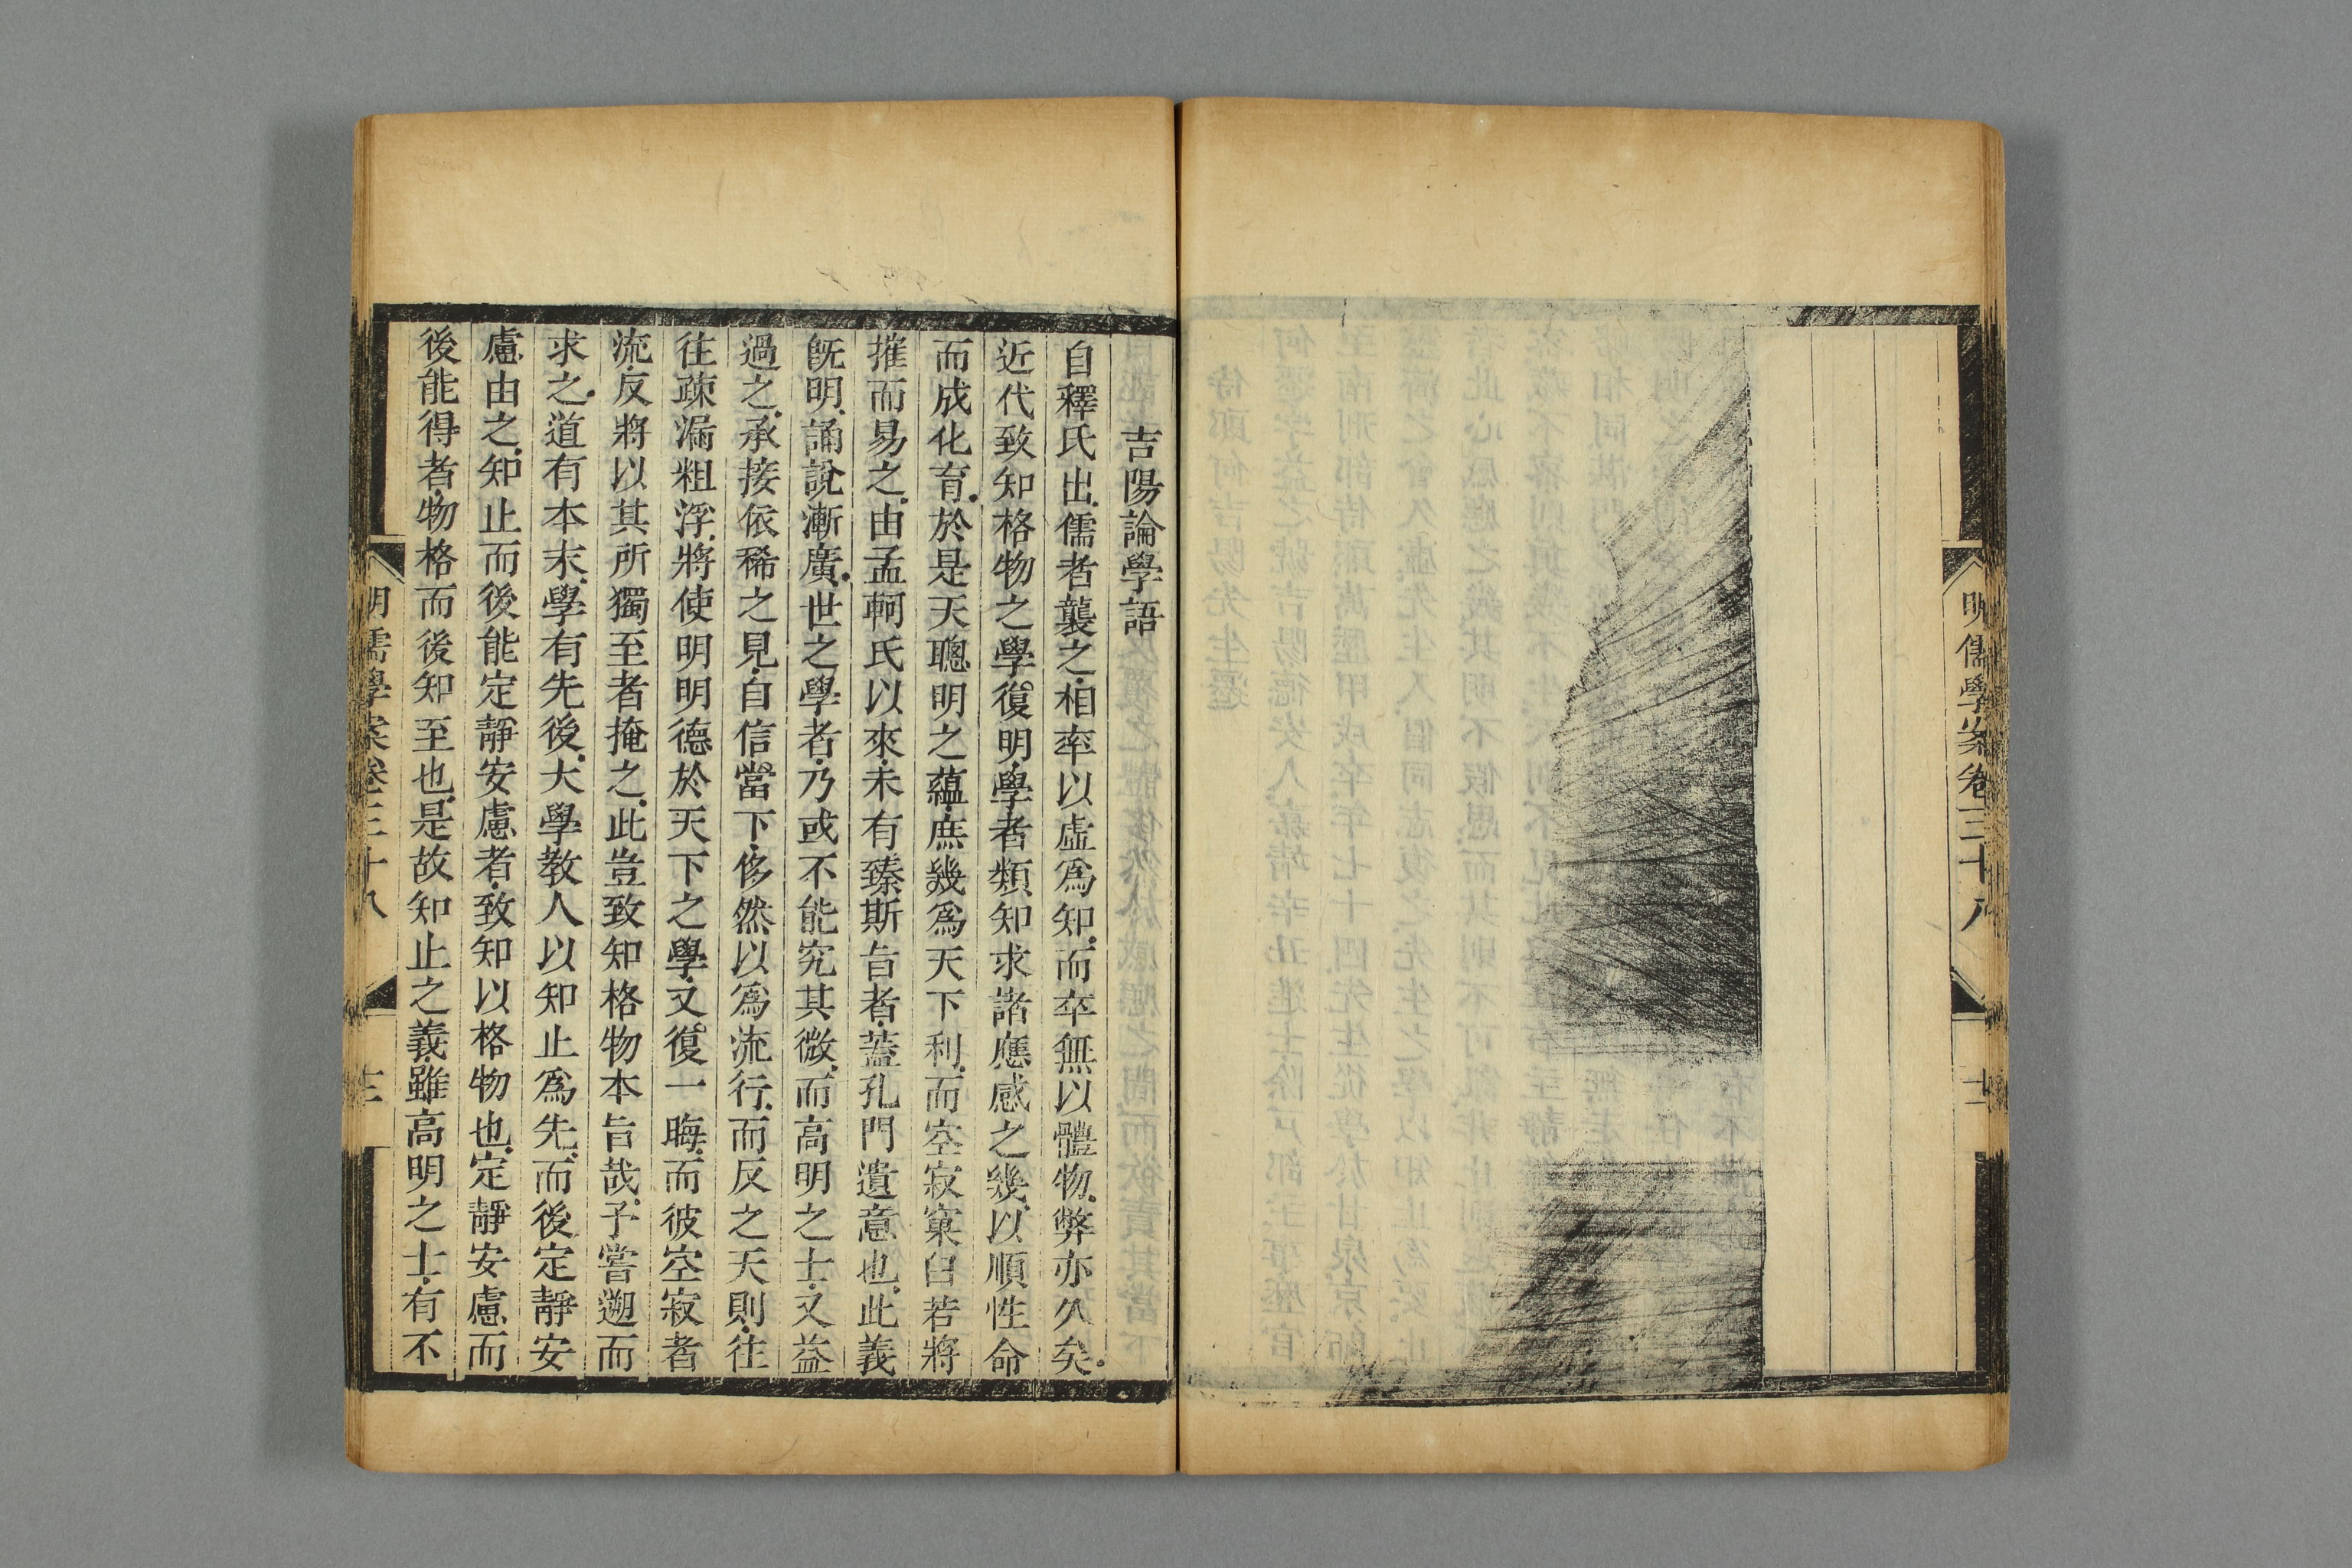 明儒學案卷三十八
吉陽論學語
自釋氏出.儒者襲之.相率以虛爲知.而卒無以體物.弊亦久矣.
近代致知格物之學復明.學者類知求諸應感之幾.以順性命
而成化育.於是天聰明之蘊.庶幾爲天下利.而空寂窠臼若將
摧而易之.由孟軻氏以來.未有臻斯旨者.蓋孔門遺意也.此義
旣明.誦說漸廣.世之學者.乃或不能究其微.而高明之士.又益
過之.承接依稀之見.自信當下.侈然以爲流行.而反之天則.往
往疎漏粗浮.將使明明德於天下之學.又復一晦.而彼空寂者
流.反將以其所獨至者掩之.此豈致知格物本旨哉.予嘗遡而
求之.道有本末.學有先後.大學教人以知止爲先.而後定靜安
慮由之.知止而後能定靜安慮者.致知以格物也.定靜安慮而
後能得者.物格而後知至也.是故知止之義.雖高明之士.有不
明儒學案卷三十八